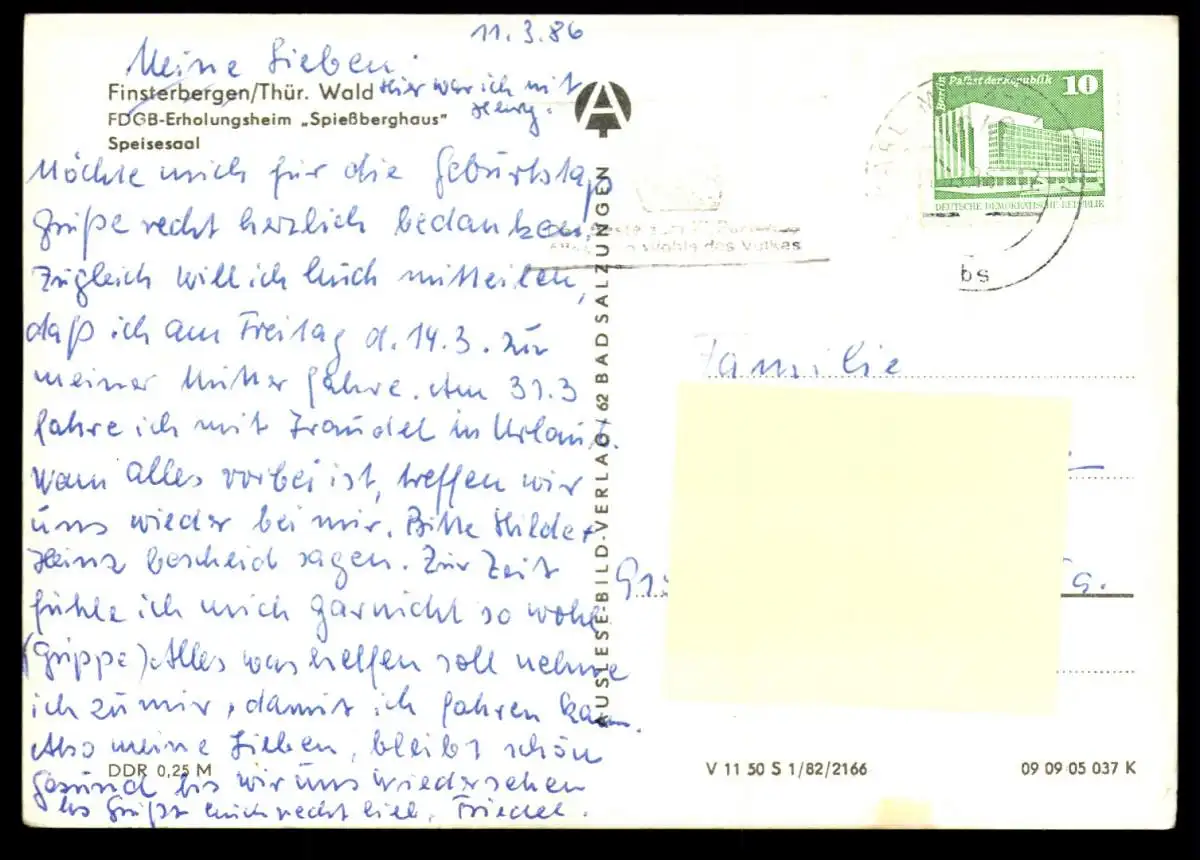 11.3.86
Meine Lieben.
Finsterbergen/Thür. Wald
Hier war ich mit
FDGB-Erholungsheim „Spießberghaus"
Speisesaal
Möchte mich für die Geburtstags
grüße recht herzlich bedanken.
Zugleich will ich Euch mitteilen,
daß ich am Freitag d. 14.3. zur
meiner Mutter fahre. Am 31.3
fahre ich mit Traudel in Urlaub.
Wann alles vorbei ist, treffen wir
uns wieder bei mir. Bitte Hilde +
Heinz bescheid sagen. Zur Zeit
fühle ich mich garnicht so wohl
(Grippe). Alles was helfen soll nehme
ich zu mir, damit ich fahren kann.
Also meine Lieben, bleibt schön
gesund bis wir uns wiedersehen
Es Grüßt Euch recht lieb. Friedel.
DDR 0,25 M
A
AUSLESE-BILD-VERLAG / 62 BAD SALZUNGEN
Wohle des Volkes
Berlin Palast der Republik
10
DEUTSCHE DEMOKRATISCHE REPUBLIK
bs
Familie
V 11 50 S 1/82/2166
09 09 05 037 K